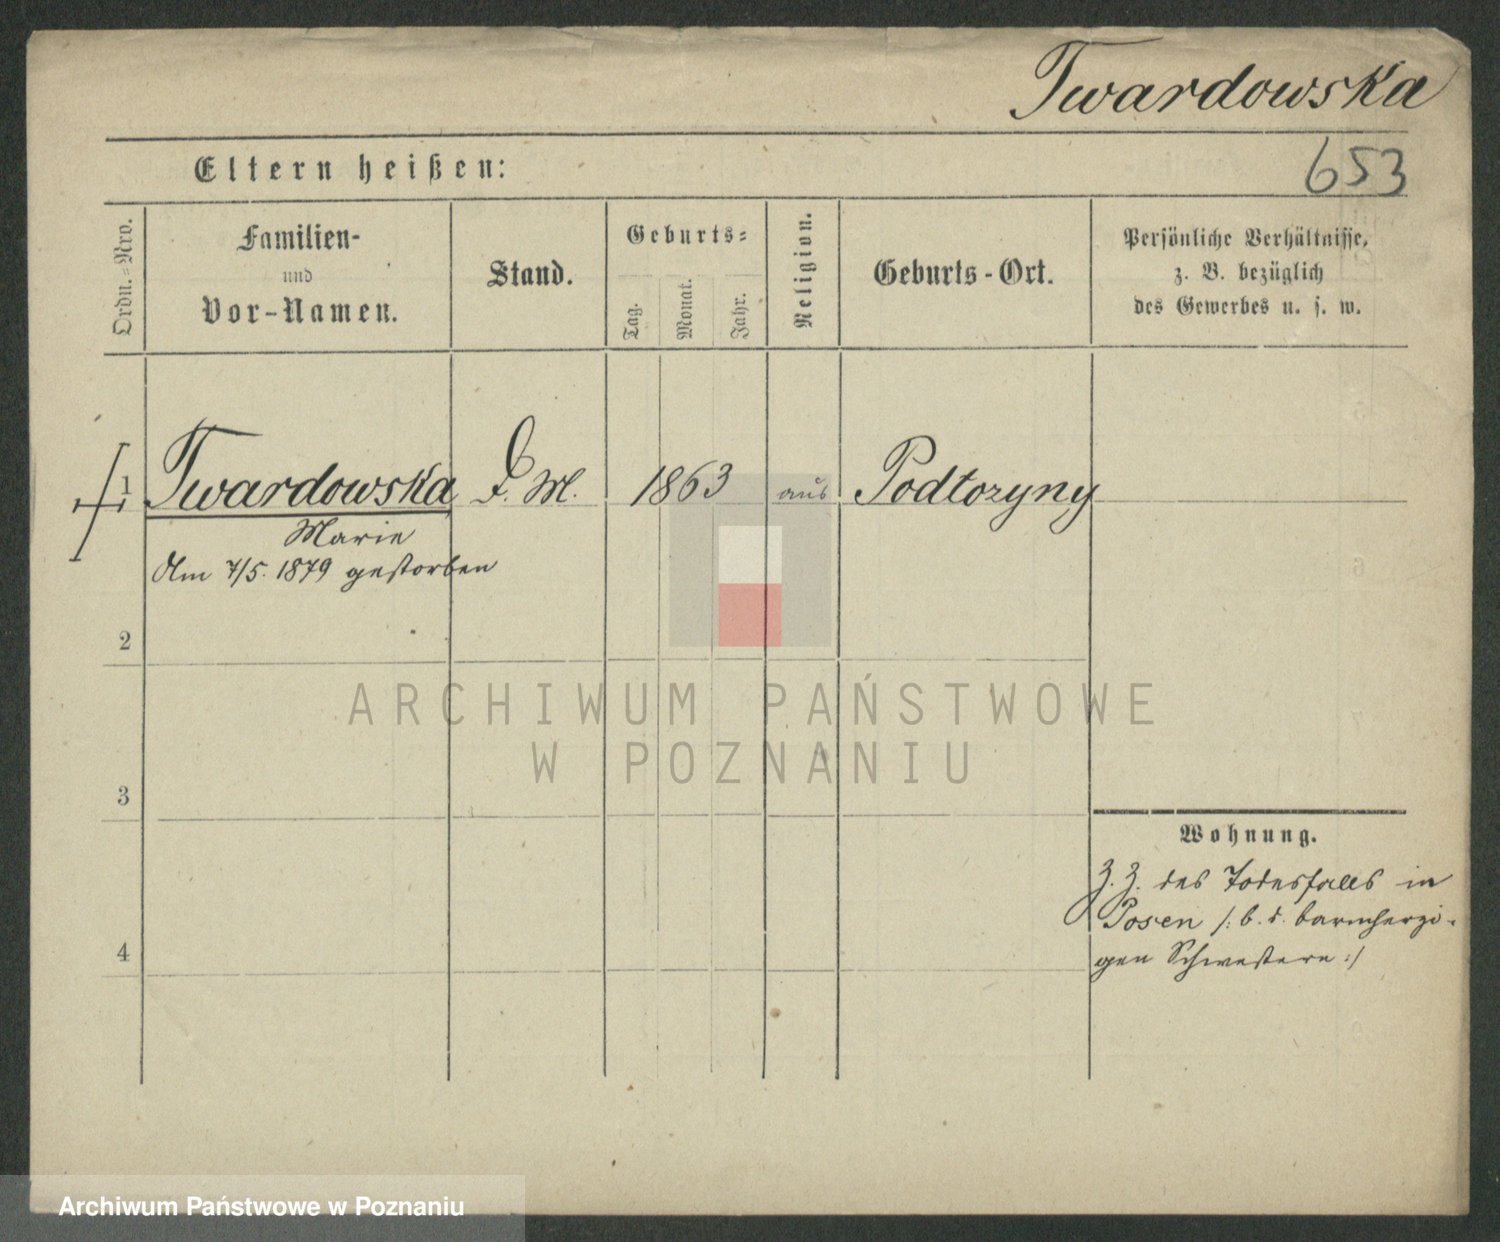 Twardowska
653
Eltern heißen:
Ordn.=Nro.
Familien-
und
Vor-Namen.
Stand.
Geburts=
Tag.
Monat.
Jahr.
Religion.
Geburts-Ort.
Persönliche Verhältnisse,
z. B. bezüglich
des Gewerbes u. s. w.
1 Twardowska D. M. 1863 aus
Marie
Am 7/5. 1879 gestorben
2
3
4
Wohnung.
Z. Z. des Todesfalls in
Posen /: b. d. barmherzi-
gen Schwestern :/
ARCHIWUM PAŃSTWOWE
W POZNANIU
Archiwum Państwowe w Poznaniu